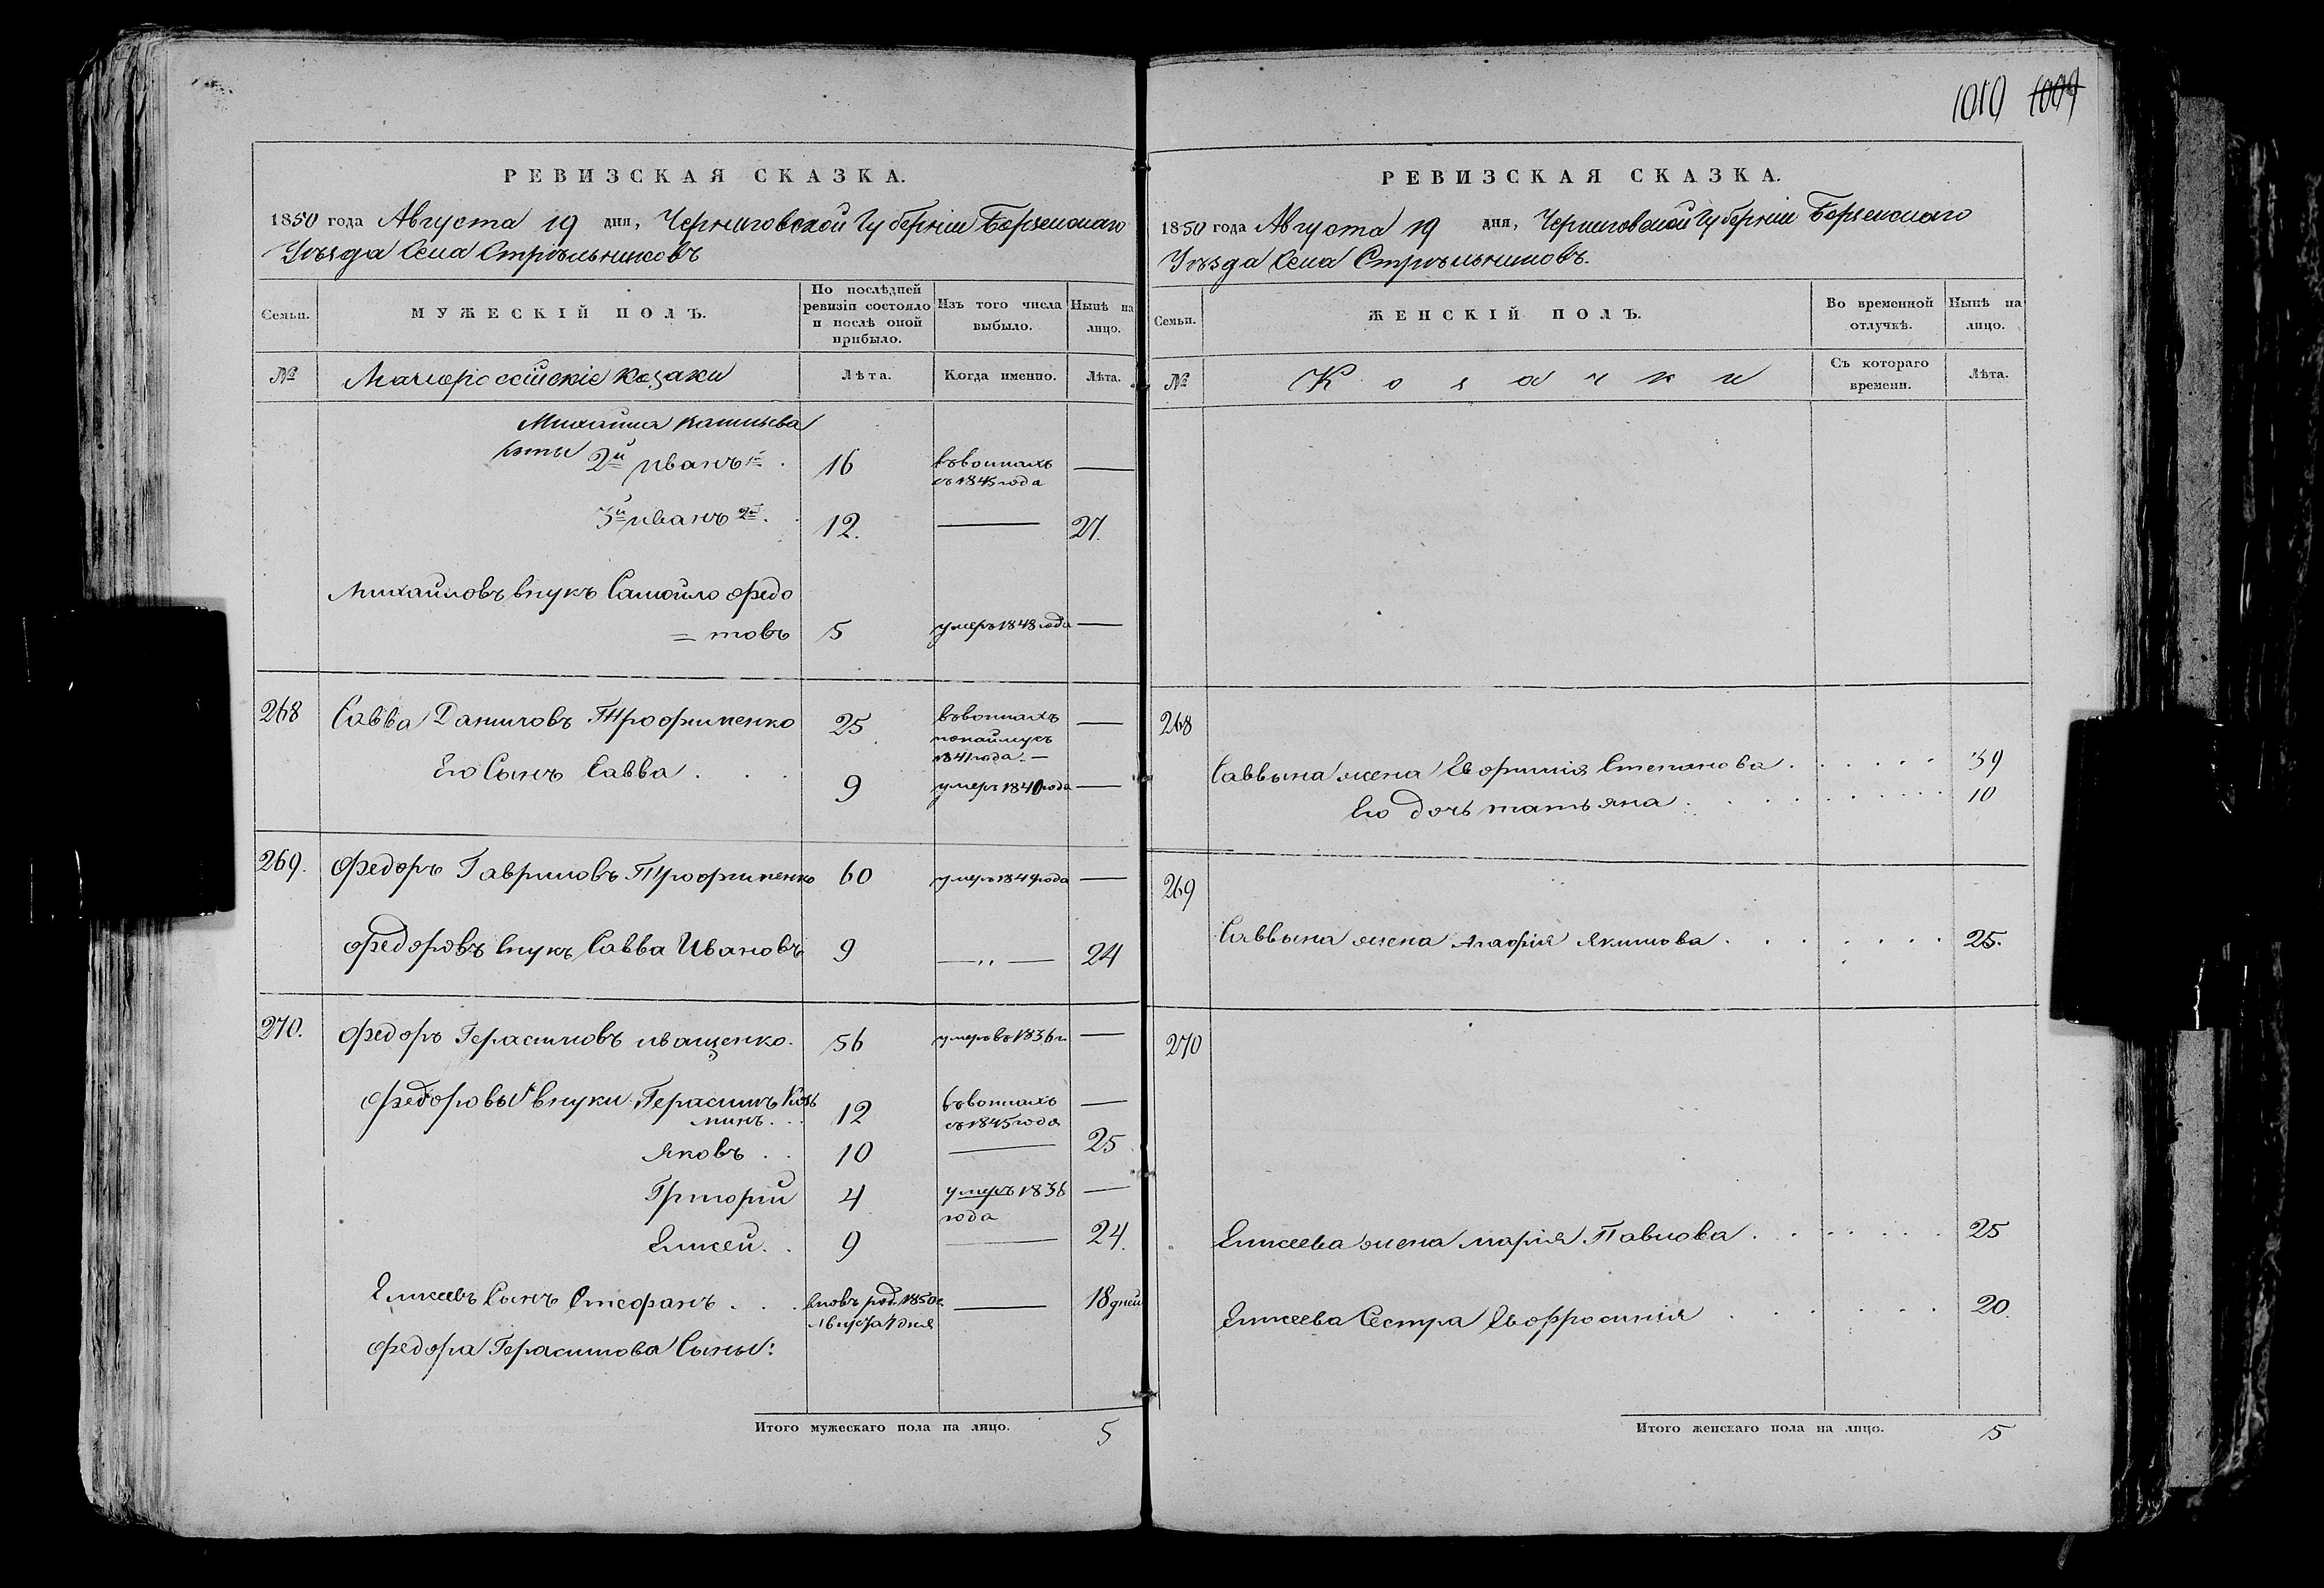 1010 1009
РЕВИЗСКАЯ СКАЗКА.
1850 года Августа 19 дня, Черниговской Губерніи Борзенскаго
Уѣзда Села Стрѣльниковъ
Семьи.
МУЖЕСКІЙ ПОЛЪ.
По послѣдней
ревизіи состояло
и послѣ оной
прибыло.
Изъ того числа
выбыло.
Нынѣ на
лицо.
№
Малороссійскіе козаки
Лѣта.
Когда именно.
Лѣта.
Михаила
сыны 2й иванъ 1й . 16 въ воинахъ —
съ 1845 года
3й иванъ 2й . 12. — 27.
Михаиловъ внукъ Самойло Федо
= товъ 5 умеръ 1848 года —
268 Савва Даниловъ Трофименко 25 въ воинахъ —
1841 года. —
Его Сынъ Савва . . . 9 умеръ 1840 года —
269. Федоръ Гавриловъ Трофименко 60 умеръ 1849 года —
Федоровъ внукъ Савва Ивановъ 9 — ,, — 24
270. Федоръ Герасимовъ иващенко. 56 умеръ въ 1836 г. —
Федоровы внуки Герасимъ Козь 12 въ воинахъ —
минъ . . съ 1845 года
Яковъ . . 10 — 25
Григорій 4 умеръ 1836 —
года
Елисей . . 9 — 24.
Елисеевъ Сынъ Стефанъ . . . вновь род. 1850 г. — 18 дней
Августа 1 дня
Федора Герасимова Сыны:
Итого мужескаго пола на лицо. 5
РЕВИЗСКАЯ СКАЗКА.
1850 года Августа 19 дня, Черниговской Губерніи Борзенскаго
Уѣзда Села Стрѣльниковъ.
Семьи.
ЖЕНСКІЙ ПОЛЪ.
Во временной
отлучкѣ.
Нынѣ на
лицо.
№
Козачки
Съ котораго
времени.
Лѣта.
268
Саввына жена Евфимія Степанова . . . . . 39
Его дочь татьяна . . . . . . . . 10
269
Саввына жена Агафія Якимова . . . . . . . 25.
270
Елисеева жена марія Павлова . . . . . . . 25
Елисеева Сестра Евфросинія . . . . . . 20.
Итого женскаго пола на лицо. 5